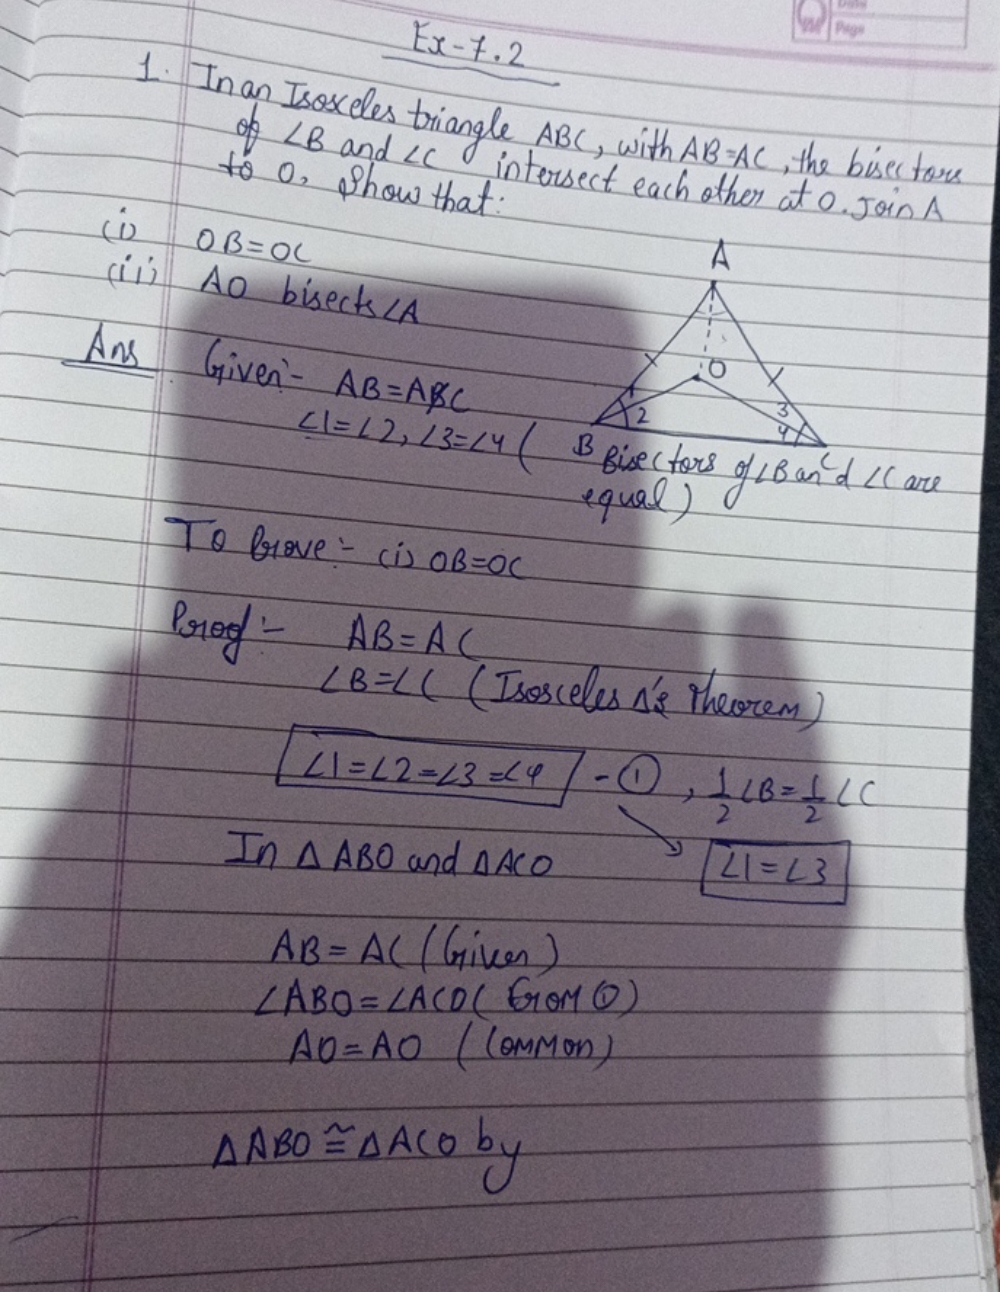 Date
Page
Ex-7.2
1. In an Isosceles triangle ABC, with AB=AC, the bisectors
of ∠B and ∠C intersect each other at O. Join A
to O. Show that:
(i) OB=OC
(ii) AO bisects ∠A
A
O
2
3
4
B
C
Ans Given:- AB=AC
∠1=∠2, ∠3=∠4 (Bisectors of ∠B and ∠C are
equal)
To Prove:- (i) OB=OC
Proof:- AB=AC
∠B=∠C (Isosceles Δ's Theorem)
∠1=∠2=∠3=∠4 - ①, 1/2 ∠B = 1/2 ∠C
∠1=∠3
In Δ ABO and Δ ACO
AB=AC (Given)
∠ABO=∠ACO (From ①)
AO=AO (Common)
ΔABO ≅ ΔACO by